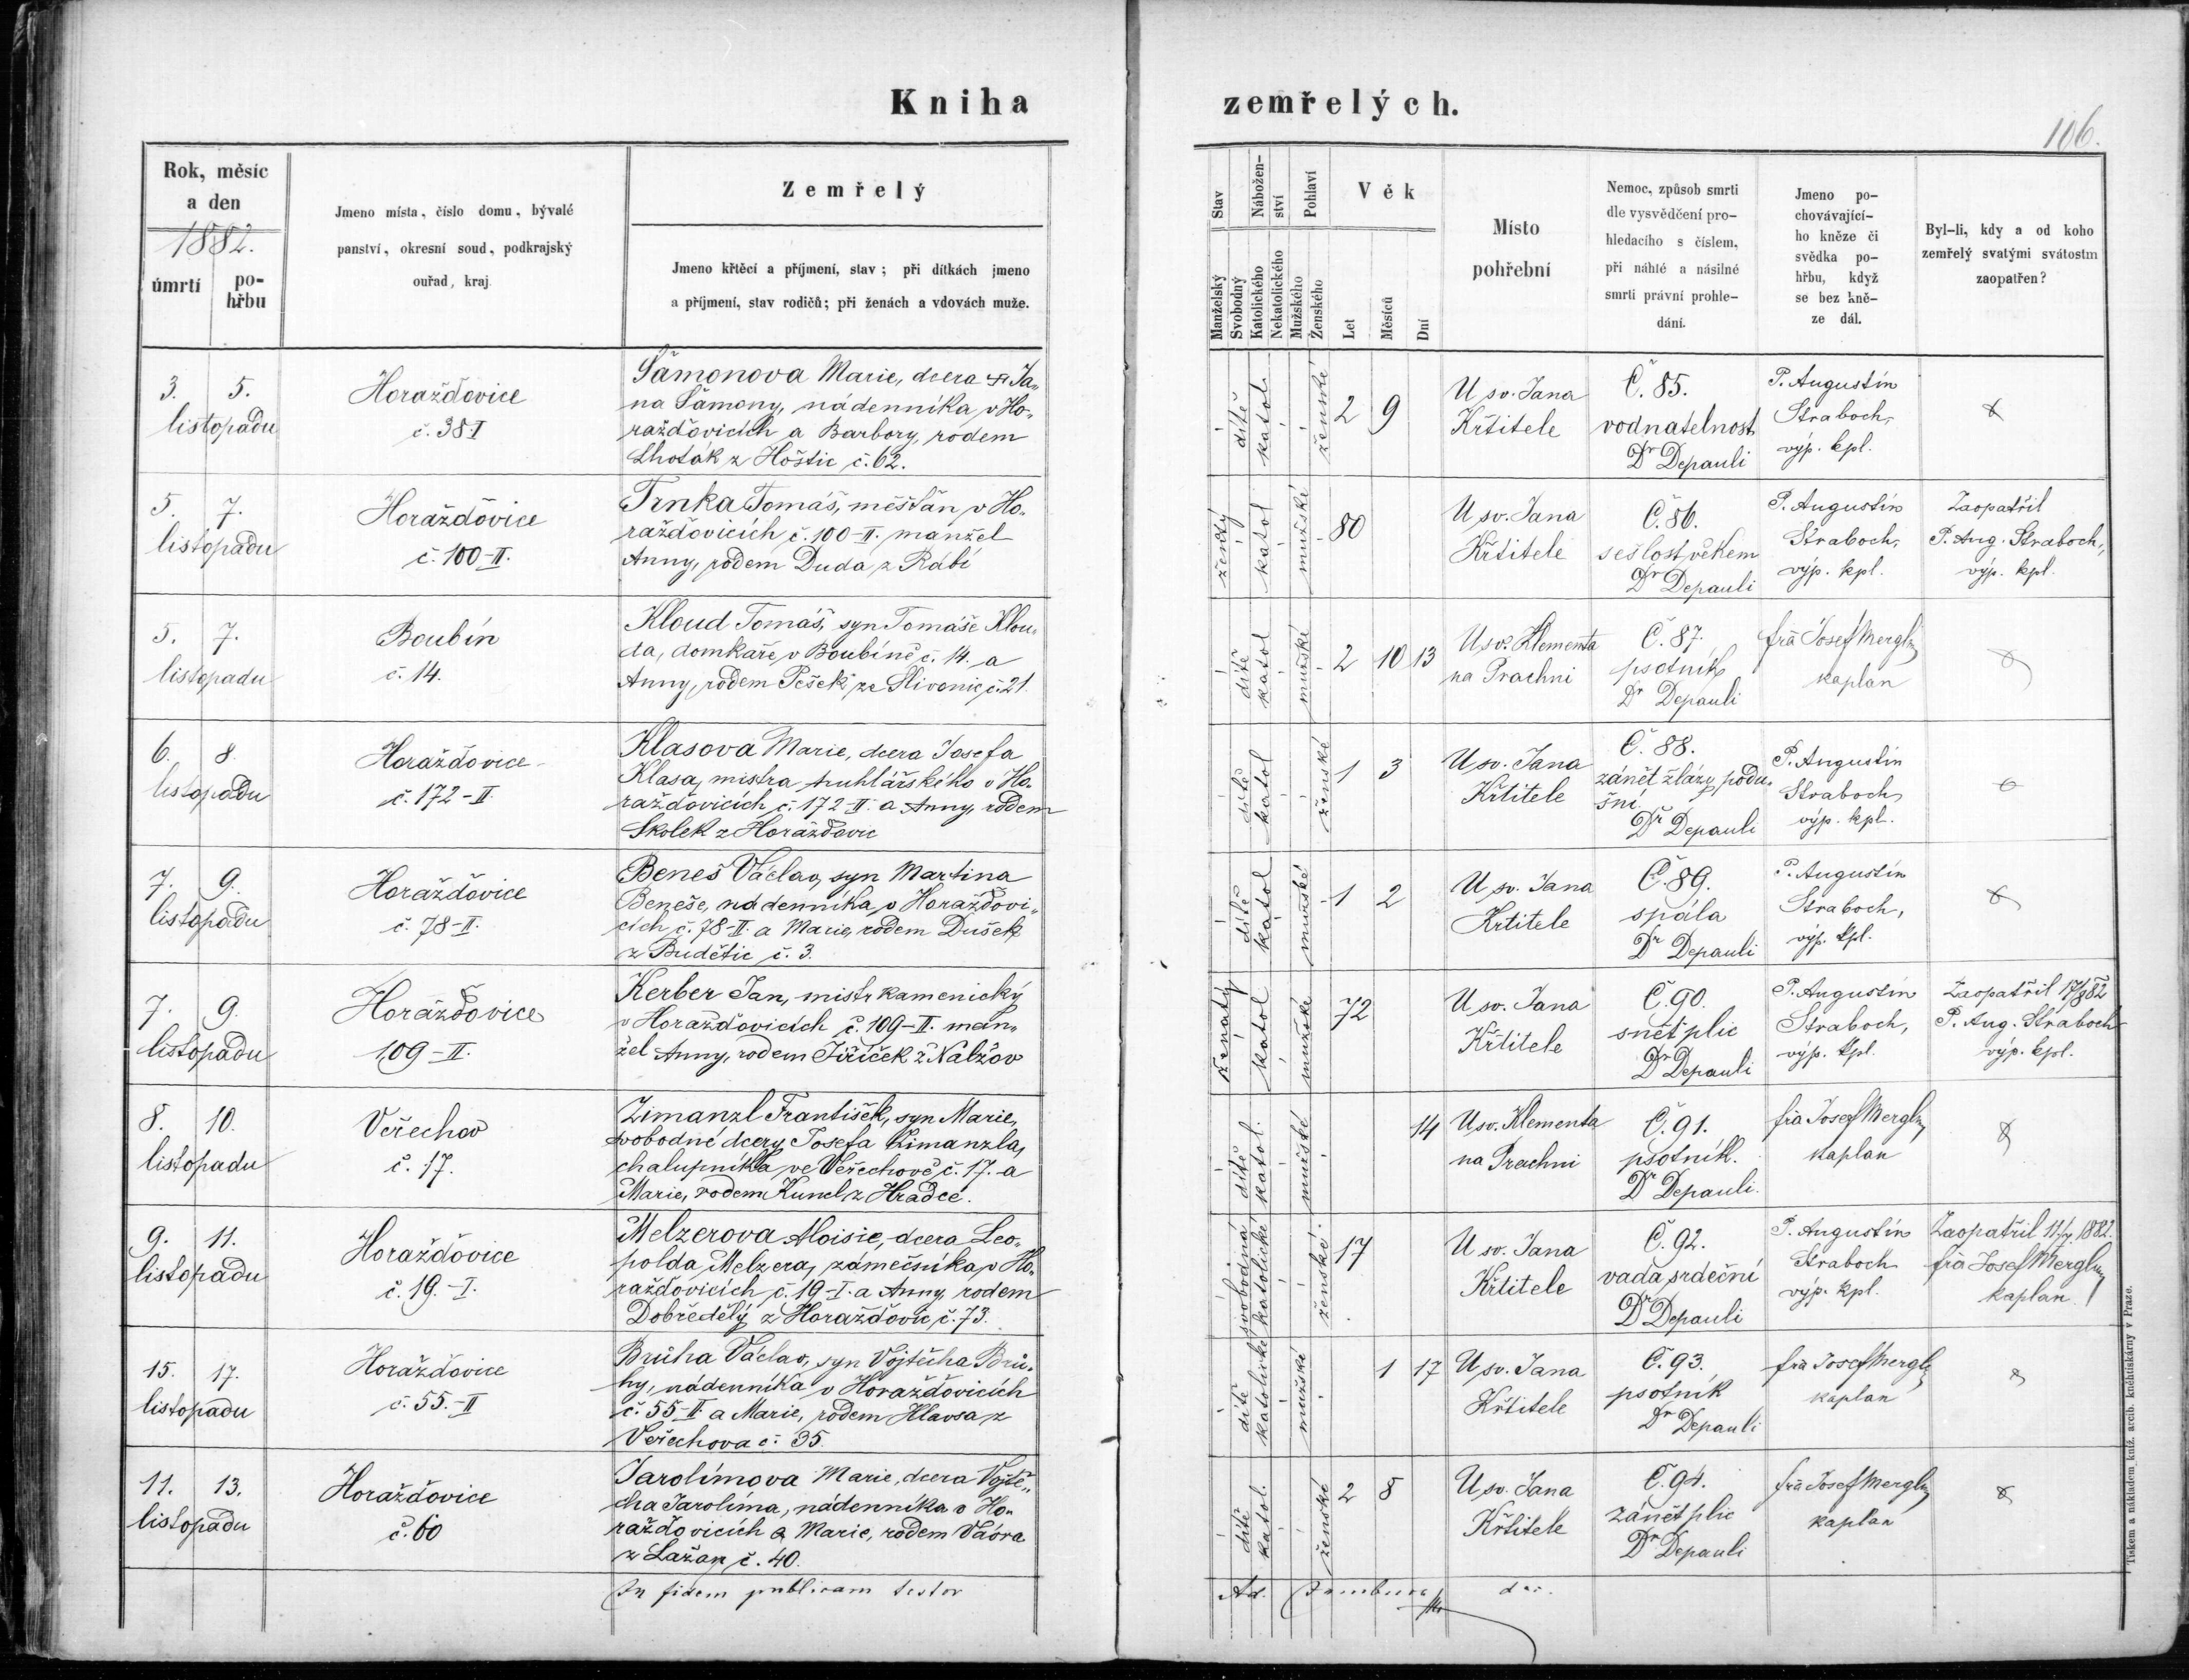 Kniha
zemřelých.
106.
Rok, měsíc
a den
1882.
úmrtí
po-
hřbu
Jmeno místa, číslo domu, bývalé
panství, okresní soud, podkrajský
ouřad, kraj.
Zemřelý
Jmeno křtěcí a příjmení, stav; při dítkách jmeno
a příjmení, stav rodičů; při ženách a vdovách muže.
Stav
Nábožen-
ství
Pohlaví
Věk
Manželský
Svobodný
Katolického
Nekatolického
Mužského
Ženského
Let
Měsíců
Dní
Místo
pohřební
Nemoc, způsob smrti
dle vysvědčení pro-
hledacího s číslem,
při náhlé a násilné
smrti právní prohle-
dání.
Jmeno po-
chovávající-
ho kněze či
svědka po-
hřbu, když
se bez kně-
ze dál.
Byl-li, kdy a od koho
zemřelý svatými svátostmi
zaopatřen?
3. 5.
listopadu
Horažďovice
č. 38-I
Šámonova Marie, dcera Ja-
na Šámony, nádenníka v Ho-
ražďovicích a Barbory, rodem
Lhoták z Hoštic č. 62.
dítě
katol.
ženské
2 9
U sv. Jana
Křtitele
Č. 85.
vodnatelnost
Dr Depauli
P. Augustin
Straboch,
výp. kpl.
5. 7.
listopadu
Horažďovice
č. 100-II.
Trnka Tomáš, měšťan v Ho-
ražďovicích č. 100-II. manžel
Anny, rodem Duda z Rábí
ženatý
katol
mužské
80
U sv. Jana
Křtitele
Č. 86.
sešlost věkem
Dr Depauli
P. Augustin
Straboch,
výp. kpl.
Zaopatřil
P. Aug. Straboch,
výp. kpl.
5. 7.
listopadu
Boubín
č. 14.
Kloud Tomáš, syn Tomáše Klou-
da, domkáře v Boubíně č. 14. a
Anny, rodem Pešek ze Slivonic č. 21.
dítě
katol
mužské
2 10 13
U sv. Klementa
na Prachni
Č. 87.
psotník
Dr Depauli
frà Josef Mergl
kaplan
6. 8
listopadu
Horažďovice
č. 172-II
Klasova Marie, dcera Josefa
Klasa, mistra truhlářského v Ho-
ražďovicích č. 172-II. a Anny, rodem
Skolek z Horažďovic
dítě
katol
ženské
1 3
U sv. Jana
Křtitele
Č. 88.
zánět žlázy podu-
šní.
Dr Depauli
P. Augustin
Straboch
výp. kpl.
7. 9.
listopadu
Horažďovice
č. 78-II.
Beneš Václav, syn Martina
Beneše, nádenníka v Horažďovi-
cích č. 78-II. a Marie, rodem Dušek
z Budětic č. 3.
dítě
katol
mužské
1 2
U sv. Jana
Křtitele
Č. 89.
spála
Dr Depauli
P. Augustin
Straboch,
výp. kpl.
7. 9.
listopadu
Horažďovice
109-II.
Kerber Jan, mistr kamenický
v Horažďovicích č. 109-II. man-
žel Anny, rodem Jiříček z Nalžov
ženatý
katol
mužské
72
U sv. Jana
Křtitele
Č. 90.
sněť plic
Dr Depauli
P. Augustin
Straboch,
výp. kpl.
Zaopatřil 17/8 82
P. Aug. Straboch
výp. kpl.
8. 10.
listopadu
Veřechov
č. 17.
Zimanzl František, syn Marie,
svobodné dcery Josefa Zimanzla,
chalupníka ve Veřechově č. 17. a
Marie, rodem Kuncl z Hradce.
dítě
katol.
mužské
14
U sv. Klementa
na Prachni
Č. 91.
psotník.
Dr Depauli.
frà Josef Mergl
kaplan
9. 11.
listopadu
Horažďovice
č. 19.-I.
Melzerova Aloisie, dcera Leo-
polda Melzera, zámečníka v Ho-
ražďovicích č. 19-I. a Anny, rodem
Dobředělý z Horažďovic č. 73.
svobodná
katolické
ženské.
17
U sv. Jana
Křtitele
Č. 92.
vada srdeční
Dr Depauli
P. Augustin
Straboch
výp. kpl.
Zaopatřil 11/7 1882.
frà Josef Mergl
kaplan
15. 17.
listopadu
Horažďovice
č. 55.-II
Brůha Václav, syn Vojtěcha Brů-
hy, nádenníka v Horažďovicích
č. 55-II. a Marie, rodem Hlavsa z
Veřechova č. 35.
dítě
katolické
mužské
1 17
U sv. Jana
Křtitele
Č. 93.
psotník
Dr Depauli
frà Josef Mergl
kaplan
11. 13.
listopadu
Horažďovice
č. 60
Jarolímova Marie, dcera Vojtě-
cha Jarolíma, nádenníka v Ho-
ražďovicích a Marie, rodem Vávra
z Lažan č. 40.
dítě
katol.
ženské
2 8
U sv. Jana
Křtitele
Č. 94.
zánět plic
Dr Depauli
frà Josef Mergl
kaplan
In fidem publicam testor
Ad.
Tiskem a nákladem kníž. arcib. knihtiskárny v Praze.